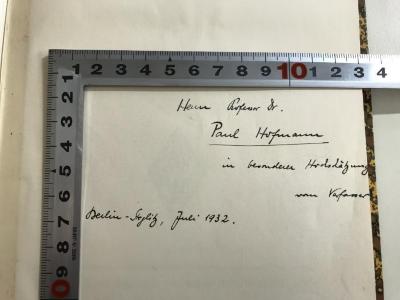 1 2 3 4 5 6 7 8 9 10 1 2 3 4
1 2 3 4 5 6 7 8 9 10
Herrn Professor Dr.
Paul Hofmann
in besonderer Hochschätzung
vom Verfasser
Berlin-Steglitz, Juli 1932.